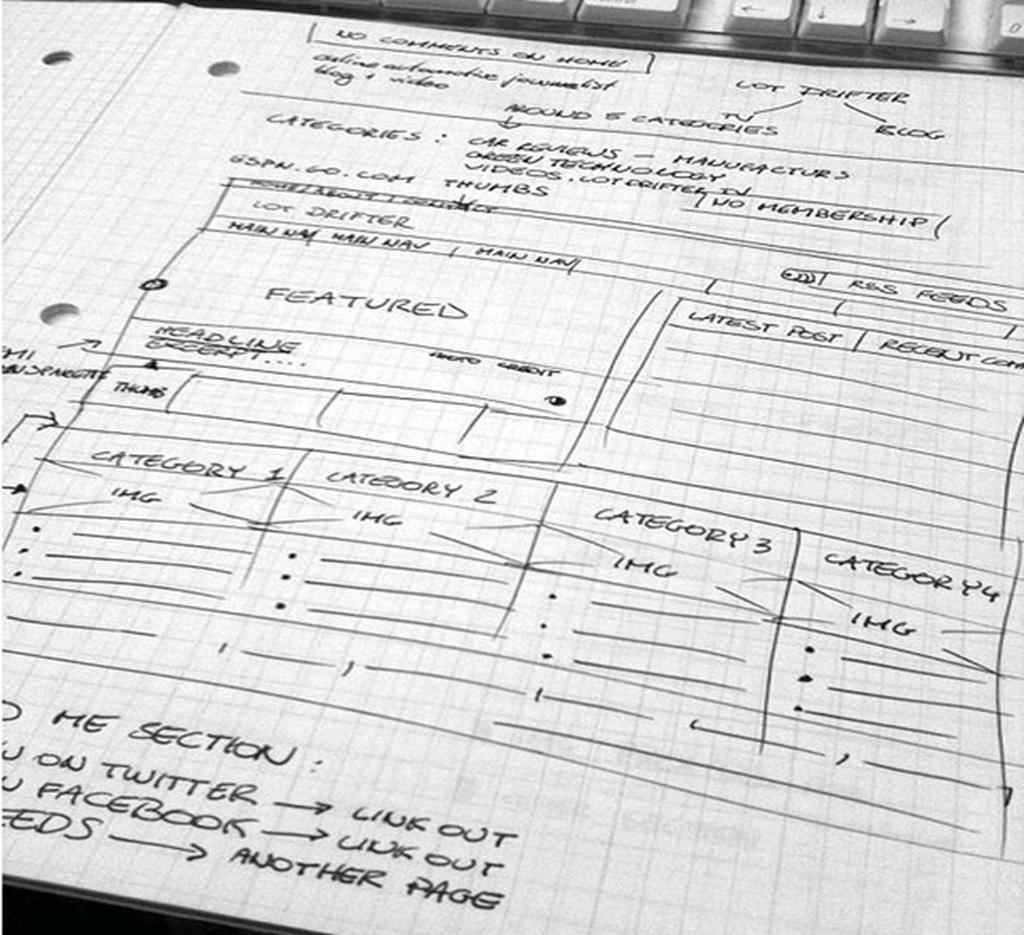 NO COMMENTS ON HOME
online automotive journalist
blog + video
LOT DRIFTER
TV
BLOG
AROUND 5 CATEGORIES
CATEGORIES : CAR REVIEWS - MANUFACTURS
GREEN TECHNOLOGY
VIDEOS.LOTDRIFTER.TV
ESPN.GO.COM THUMBS
NO MEMBERSHIP
HOME / ABOUT / CONTACT
LOT DRIFTER
MAIN NAV / MAIN NAV / MAIN NAV /
RSS FEEDS
FEATURED
LATEST POST / RECENT COM
HEADLINE
EXCERPT....
PHOTO CREDIT
THUMB
CATEGORY 1
CATEGORY 2
CATEGORY 3
CATEGORY 4
IMG
IMG
IMG
IMG
ME SECTION :
ON TWITTER → LINK OUT
FACEBOOK → LINK OUT
EEDS → ANOTHER PAGE